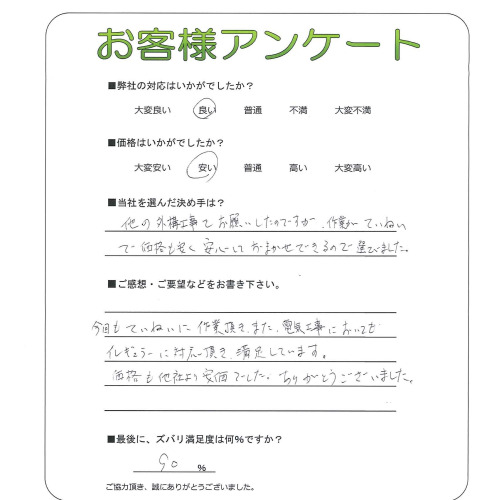 お客様アンケート
■弊社の対応はいかがでしたか？
大変良い 良い 普通 不満 大変不満
■価格はいかがでしたか？
大変安い 安い 普通 高い 大変高い
■当社を選んだ決め手は？
他の外構工事でお願いしたのですが、作業がていねい
で価格も安く安心しておまかせできるので選びました。
■ご感想・ご要望などをお書き下さい。
今回もていねいに作業頂き、また、電気工事においても
イレギュラーに対応頂き、満足しています。
価格も他社より安価でした。ありがとうございました。
■最後に、ズバリ満足度は何%ですか？
90 %
ご協力頂き、誠にありがとうございました。